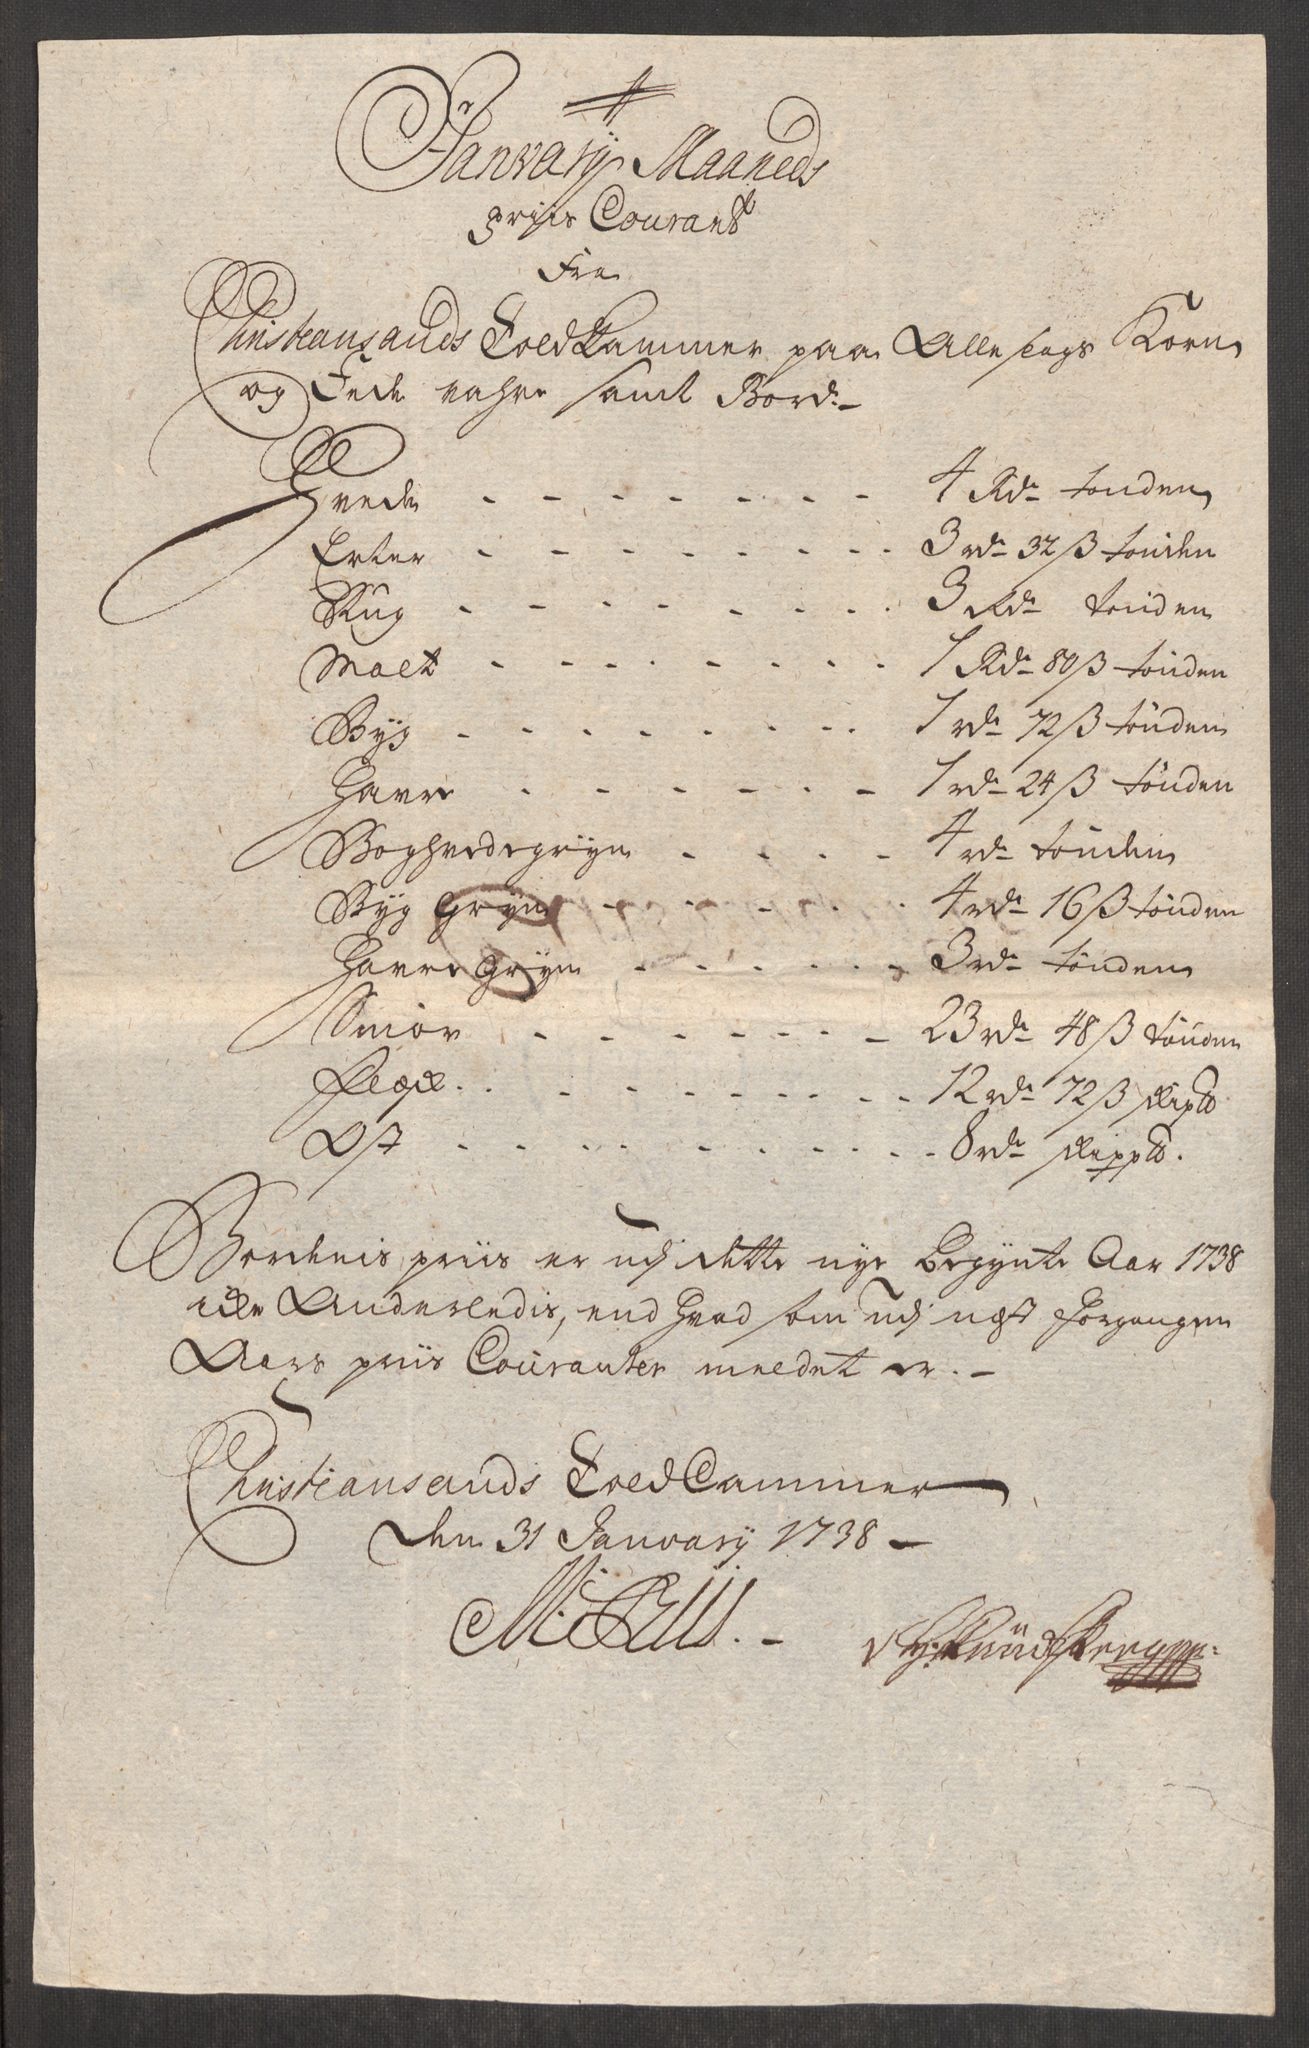 Janvarÿ Maaneds
priis Courant
Fra
Christiansands Toldkammer paa Alle slags Korn
og Fede vahre samt Bord:
Hvede - - - - - - - 4 Rdr tonden
Erter - - - - - - - - 3 rdr 32 β tonden
Rug - - - - - - - - 3 Rdr tønden
Malt - - - - - - - - 1 Rdr 80 β tønden
Byg - - - - - - - - 1 rdr 72 β tønden
Havre - - - - - - - 1 rdr 24 β tønden
Boghvedegryn - - - - 4 rdr tønden
Byg Gryn - - - - - - 4 rdr 16 β tønden
Havre Gryn - - - - - - 3 rdr tønden
Smør - - - - - - - 23 rdr 48 β tønden
Flesk - - - - - - - - - 12 rdr 72 β Skip℔
Ost - - - - - - - - - - 8 rdr Skipp℔.
Bordenis priis er udj dette nye Begynte Aar 1738
icke Anderledis, end hvad som udj nest forgangen
Aars priis Couranter meldet er. -
Christiansands ToldCammer
den 31 Janvarÿ 1738 -